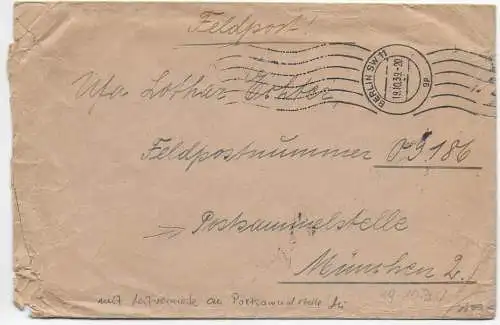 Feldpost!
BERLIN SW 11
19.10.39.-20
gp
Ufa Lothar
Feldpostnummer 09186
Postsammelstelle
München 2.
mit Leitvermerk an Postsammelstelle